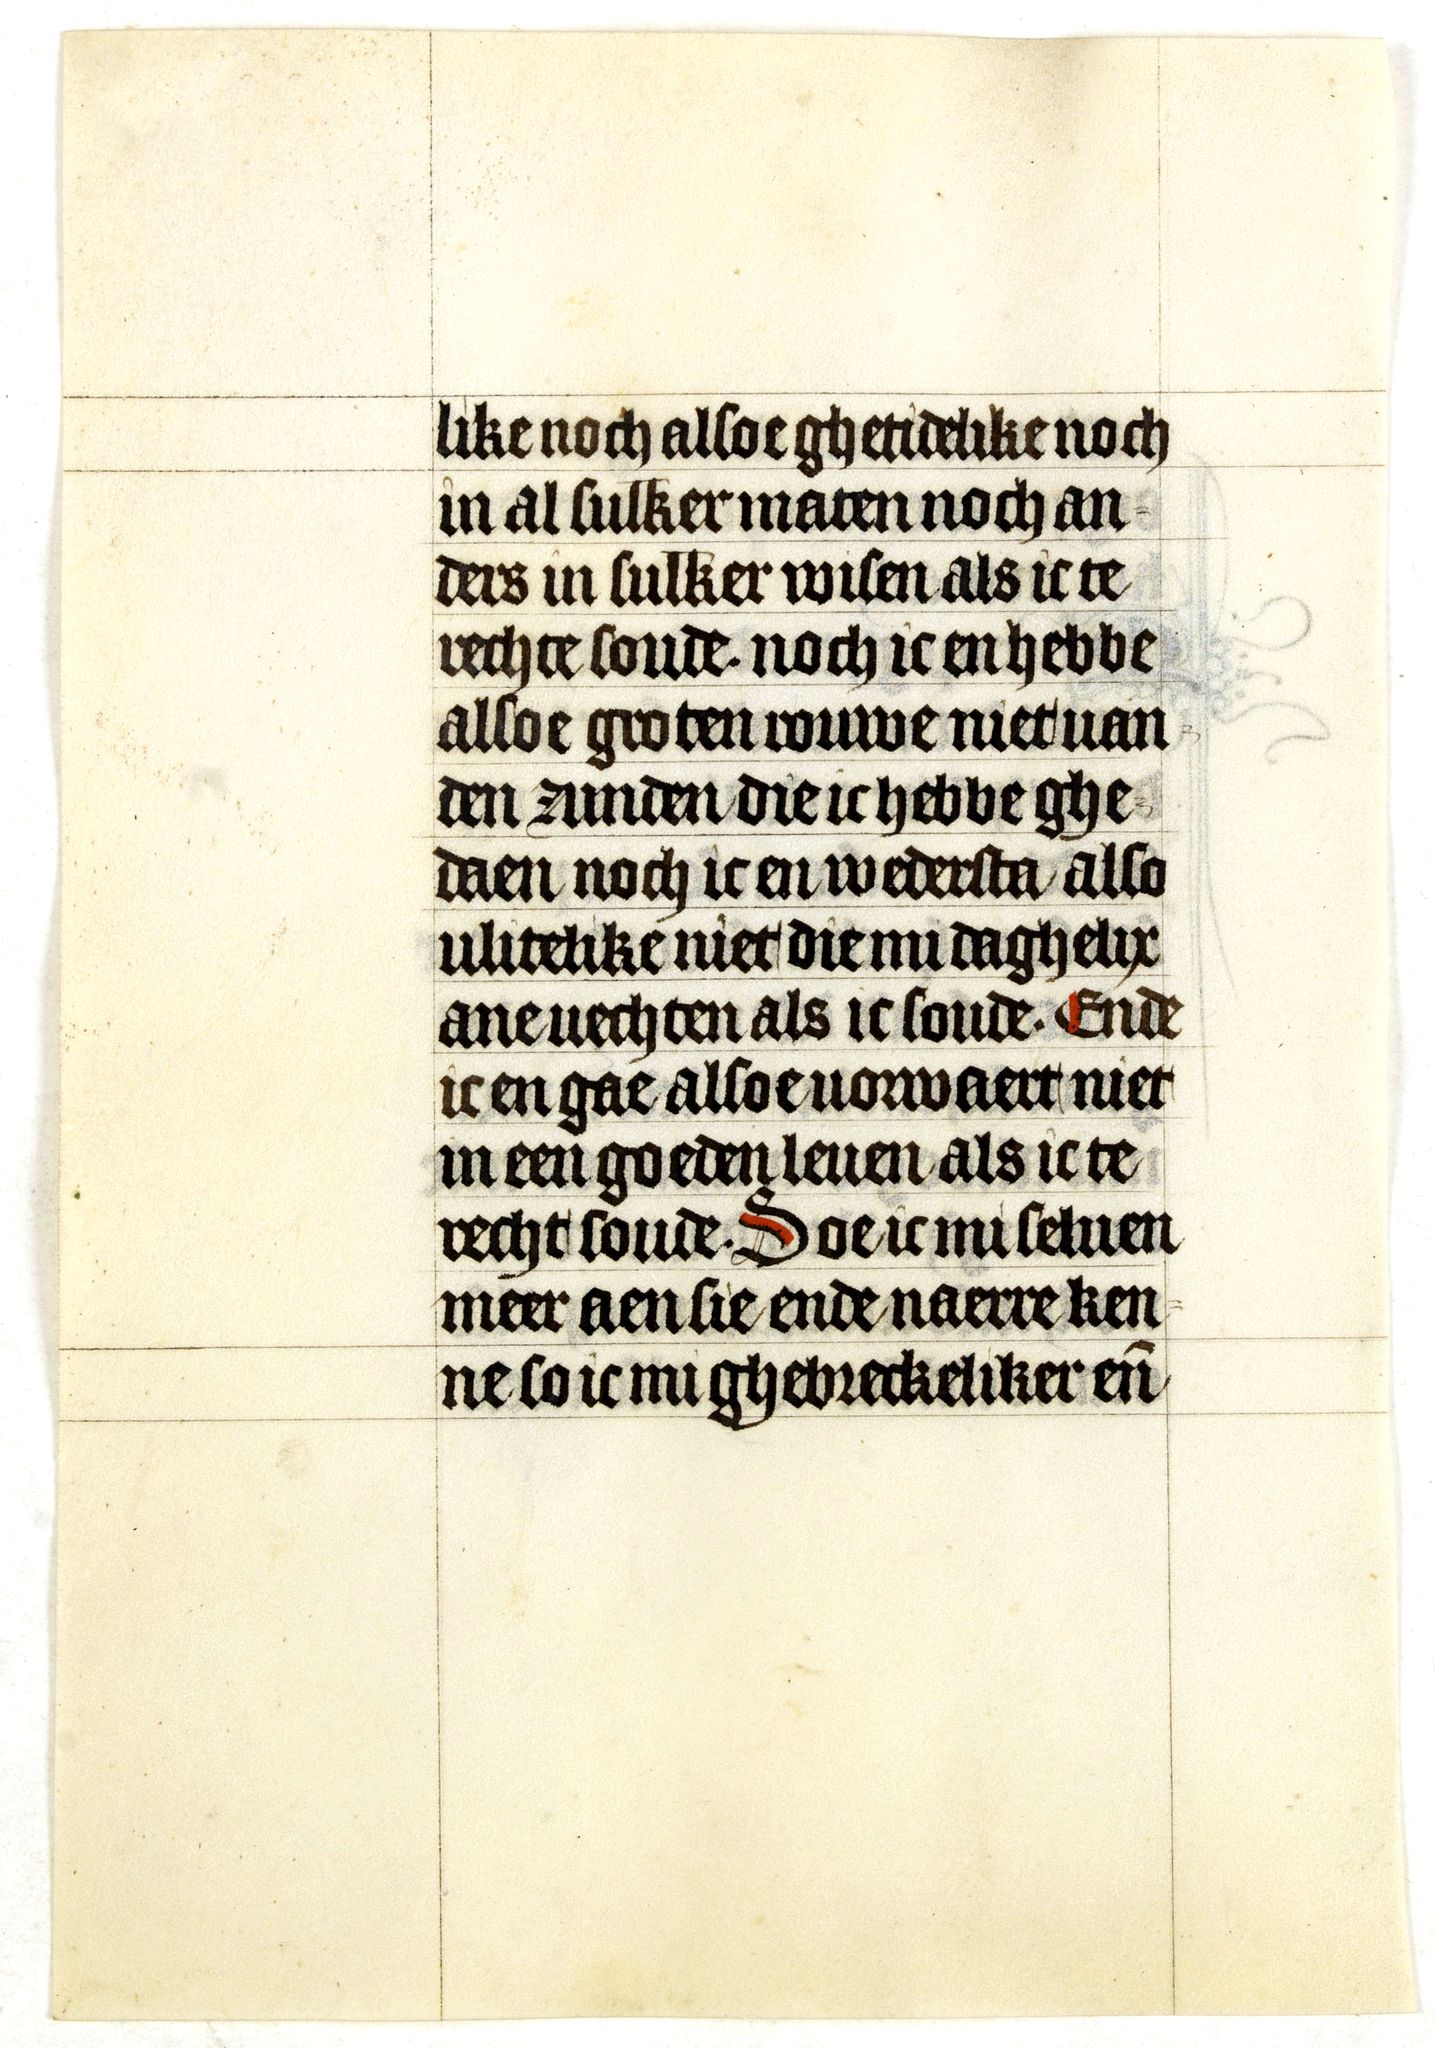 like noch alsoe ghetidelike noch
in al sulker maten noch an-
ders in sulker wisen als ic te
rechte soude. noch ic en hebbe
alsoe groten rouwe niet uan
den zunden die ic hebbe ghe-
daen noch ic en wedersta also
ulitelike niet die mi daghelix
ane uechten als ic soude. Ende
ic en gae alsoe uorwaert niet
in een goeden leuen als ic te
recht soude. Soe ic mi seluen
meer aen sie ende naerre ken-
ne so ic mi ghebreckeliker en̄